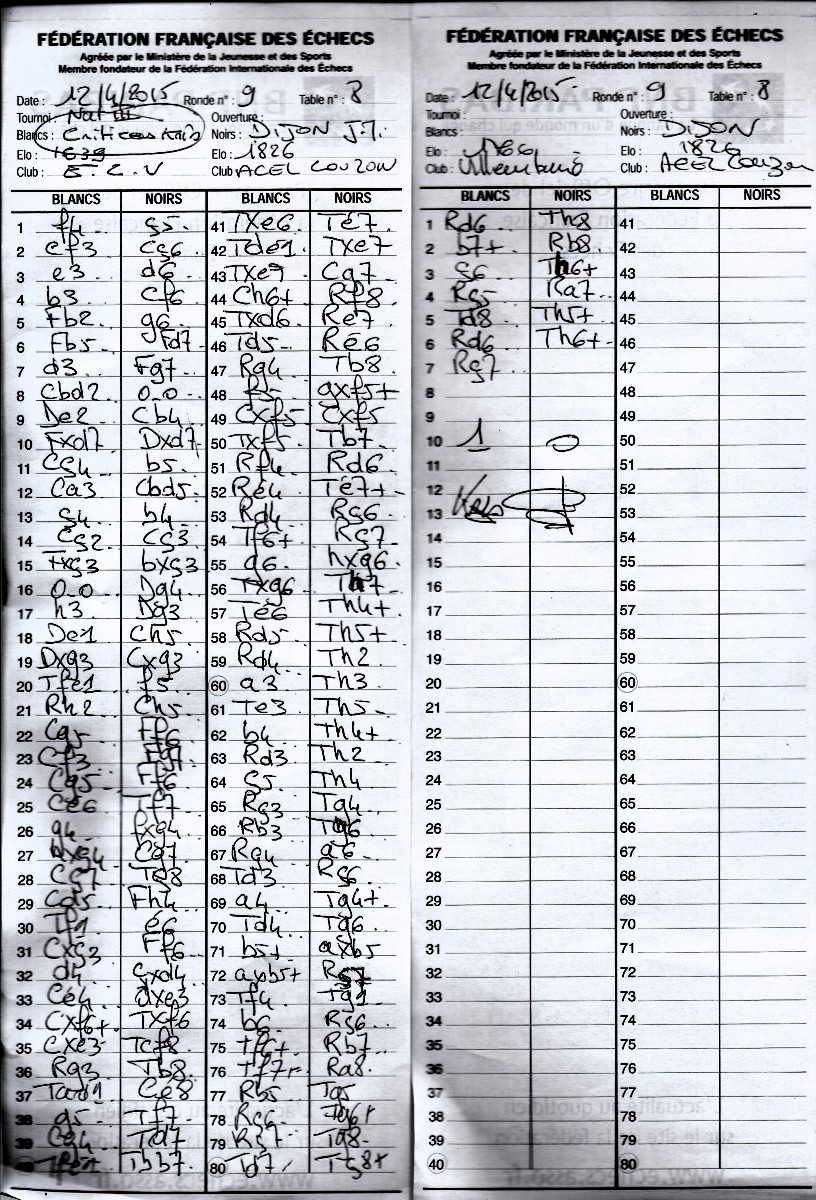 FÉDÉRATION FRANÇAISE DES ÉCHECS
Agréée par le Ministère de la Jeunesse et des Sports
Membre fondateur de la Fédération Internationale des Échecs
Date : 12/4/2015 Ronde n° : 9 Table n° : 8
Tournoi : Nat III Ouverture :
Blancs : Noirs : DIJON J.J.
Elo : 1639 Elo : 1826
Club : E.C.V Club ACEL COUZON
BLANCS NOIRS BLANCS NOIRS
1 f4 g5 41 TXe6 Té7
2 cf3 cg6 42 Tde1 TXe7
3 e3 d6 43 TXe7 Cg7
4 b3 Cf6 44 Ch6+ Rf8
5 Fb2 g6 45 Txd6 Re7
6 Fb5 Fd7 46 Td5 Ré6
7 d3 Fg7 47 Rg4 Tb8
8 Cbd2 0-0 48 f5 gxf5+
9 De2 Cb4 49 Cxf5 Cxf5
10 Fxd7 Dxd7 50 Txf5 Tb7
11 Cg4 b5 51 Rf4 Rd6
12 Ca3 Cbd5 52 Ré4 Té7+
13 g4 b4 53 Rd4 Rg6
14 Cg2 Cg3 54 Tf6+ Rg7
15 fxg3 bxg3 55 g6 hxg6
16 0-0 Dg4 56 Txg6 Th7
17 h3 Dg3 57 Té6 Th4+
18 De1 Ch5 58 Rd5 Th5+
19 Dxg3 Cxg3 59 Rd4 Th2
20 Tfe1 f5 60 a3 Th3
21 Rh2 Ch5 61 Te3 Th5
22 Cg5 Ff6 62 b4 Th4+
23 Cf3 Fg7 63 Rd3 Th2
24 Cg5 Ff6 64 g5 Th4
25 Ce6 Tf7 65 Rg3 Tg4
26 g4 fxg4 66 Rb3 Tg6
27 hxg4 Cg7 67 Rg4 a6
28 Cg7 Td8 68 Td3 Rg6
29 Cd5 Fh4 69 a4 Tg4+
30 Tf1 é6 70 Td4 Tg6
31 Cxg3 Ff6 71 b5+ axb5
32 d4 cxd4 72 axb5+ Rg7
33 Cé4 dxe3 73 Tf4 Tg1
34 Cxf6+ Txf6 74 b6 Rg6
35 Cxe3 Tcf8 75 Tf6+ Rb7
36 Rg3 Tb8 76 Tf7+ Ra8
37 Tad1 Cé8 77 Rb5 Tg5
38 g5 Tf7 78 Rg4 Tg6+
39 Cg4 Td7 79 Rg7 Tg8
40 Tfe1 Tbb7 80 Td7 Tg8+
FÉDÉRATION FRANÇAISE DES ÉCHECS
Agréée par le Ministère de la Jeunesse et des Sports
Membre fondateur de la Fédération Internationale des Échecs
Date : 12/4/2015 Ronde n° : 9 Table n° : 8
Tournoi : Ouverture :
Blancs : Noirs : DIJON
Elo : Elo : 1826
Club : Club : ACEL Couzon
BLANCS NOIRS BLANCS NOIRS
1 Rd6 Th8 41
2 b7+ Rb8 42
3 g6 Th6+ 43
4 Rg5 Ra7 44
5 Td8 Th5+ 45
6 Rd6 Th6+ 46
7 Rg7 47
8 48
9 49
10 1 0 50
11 51
12 52
13 53
14 54
15 55
16 56
17 57
18 58
19 59
20 60
21 61
22 62
23 63
24 64
25 65
26 66
27 67
28 68
29 69
30 70
31 71
32 72
33 73
34 74
35 75
36 76
37 77
38 78
39 79
40 80